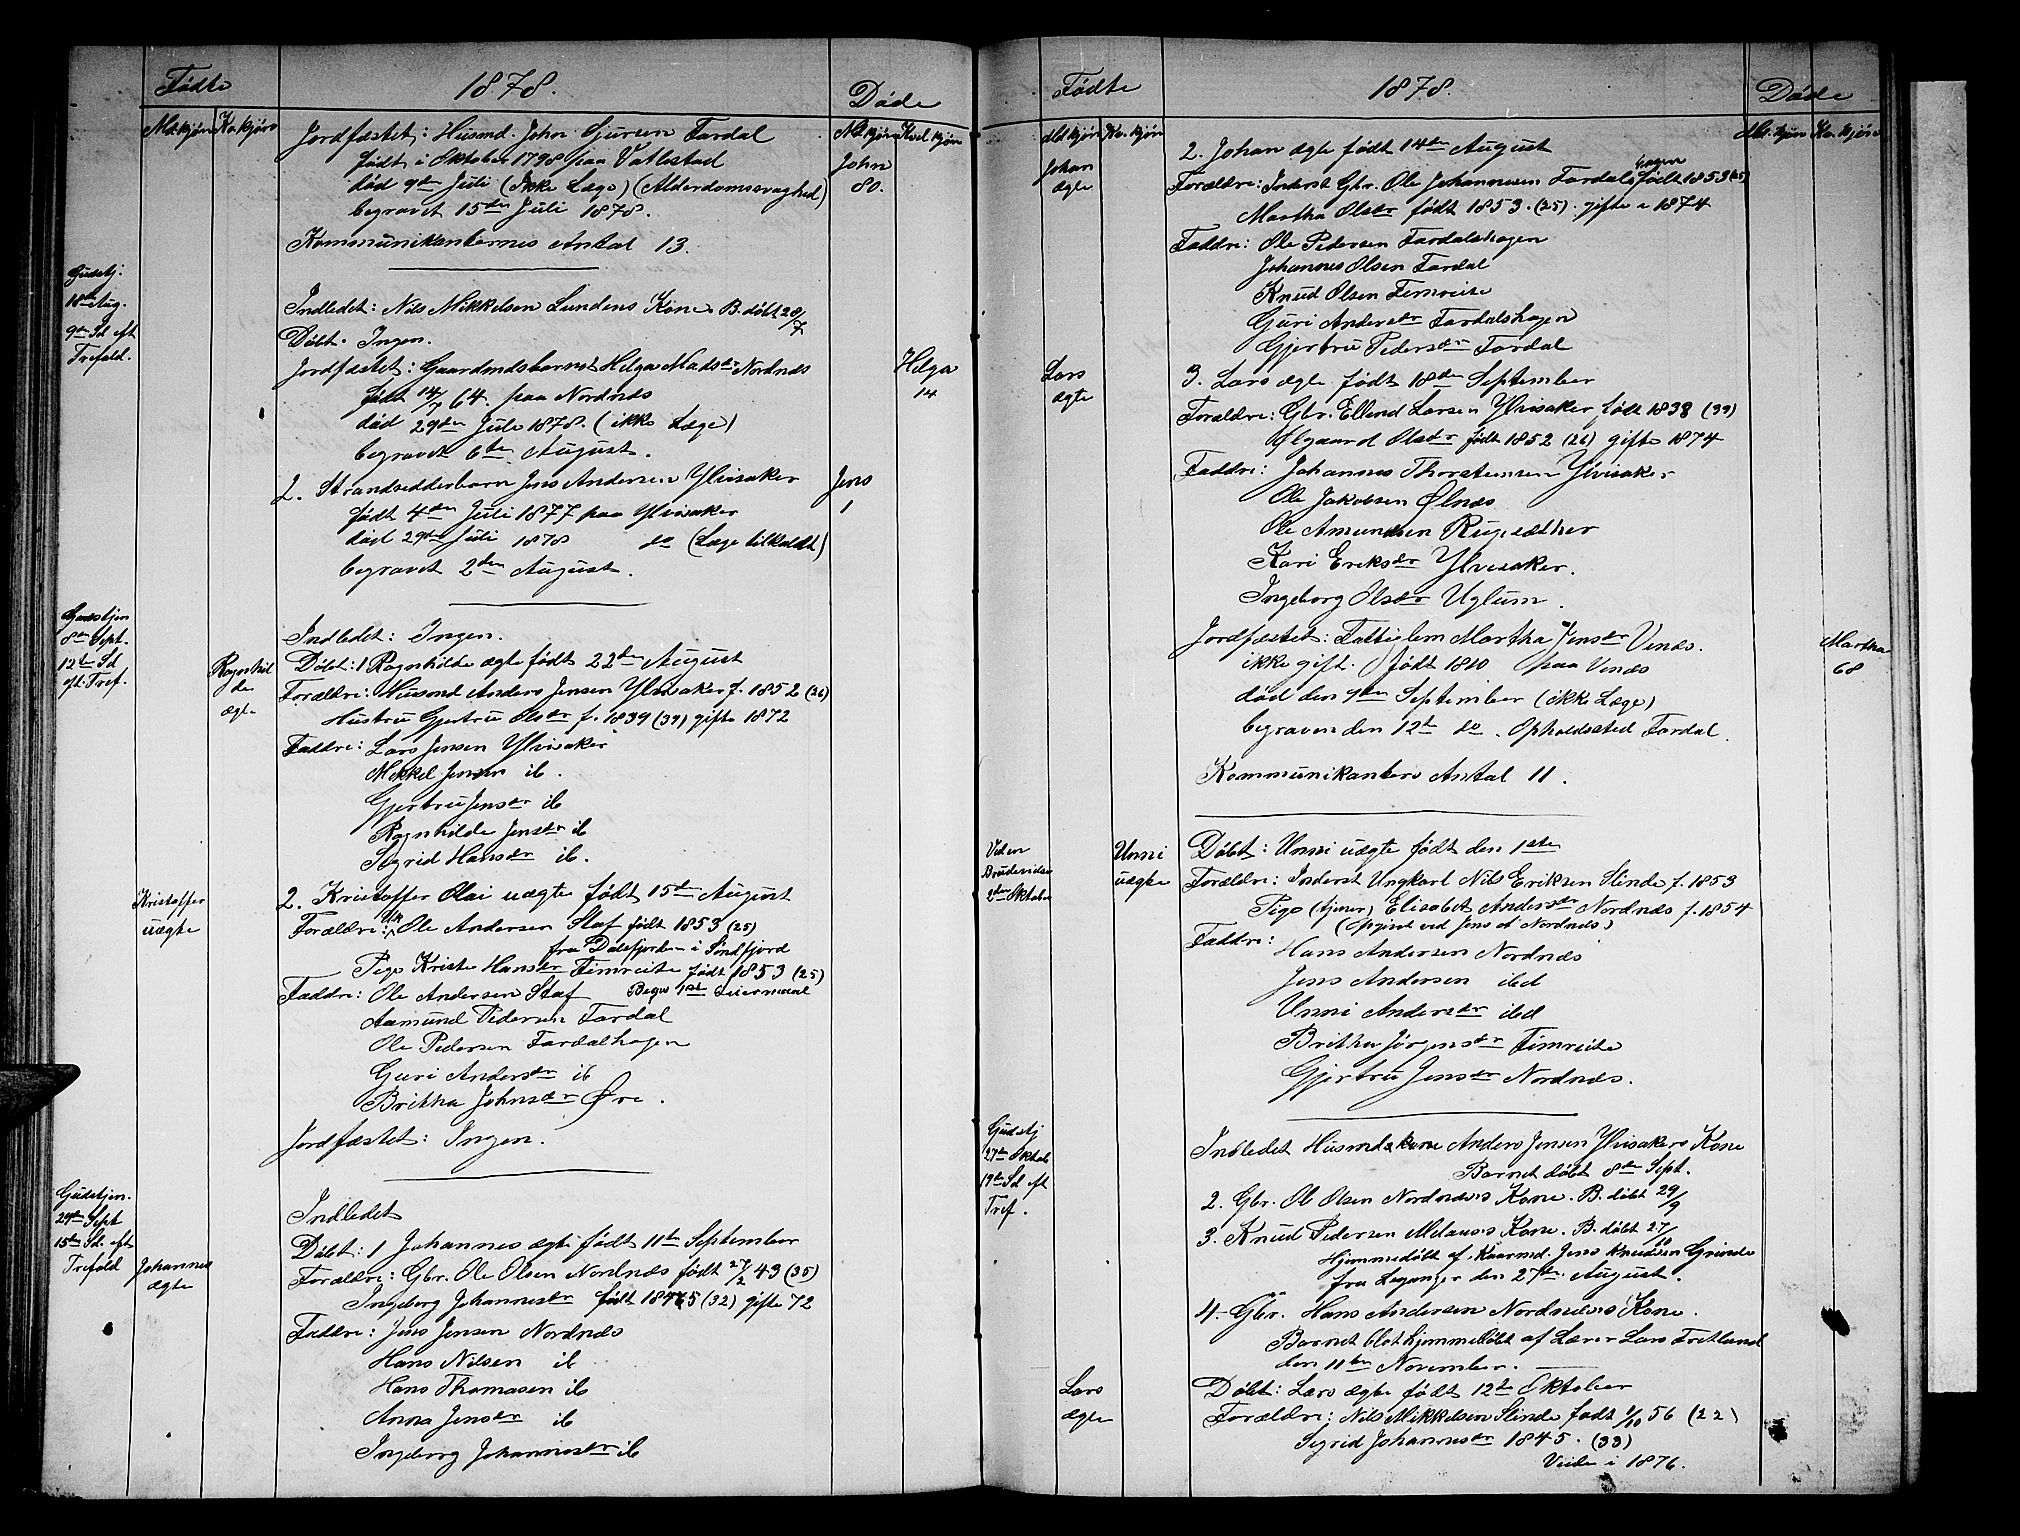 Fødte
1878.
Døde
Md.kjøn Kv.kjøn
Md.kjøn Kvd.kjøn
Jordfæstet: Husmd. John Guresen Fardal
født i Oktober 1798 paa Vatlestad
død 9de Juli (Ikke Læge) (Alderdomssvaghed)
begravet 15de Juli 1878.
John
80.
Kommunikanternes Antal 13.
Gudstj.
18de Aug.
9de Sd eft
Trefold.
Indledet: Nils Mikkelsen Lundens Kone B. døbt 28/7
Døbt. Ingen.
Jordfæstet: Gaardmdsbarnet Helga Madsdr Nordnæs
født 14/7 64. paa Nordnæs
død 29de Juli 1878. (ikke Læge)
begravet 6te August.
Helga
14
2. Strandsidderbarn Jens Andersen Ylvisaker
født 4de Juli 1877 paa Ylvisaker
død 29de Juli 1878 do (Læge tilkaldt)
begravet 2den August.
Jens
1
Gudstjen
8de Sept.
12te Sd
eft. Tref.
Indledet: Ingen.
Døbt: 1 Ragnhilde ægte født 22de August
Forældre: Husmd Anders Jensen Ylvisaker f. 1852 (26)
Hustru Gjertru Olsdr f. 1839 (39) gifte 1872
Faddre: Lars Jensen Ylvisaker
Mikkel Jensen ib.
Gjertru Jensdr ib
Ragnhilde Jensdr ib
Sigrid Hansdr ib.
Ragnhil
de
ægte
2. Kristoffer Olai uægte født 15de August
Forældre: Uk Ole Andersen Staf født 1853 (25)
fra Dalefjorden i Søndfjord
Pige Kristi Hansdr Fimreite født 1853 (25)
Faddre: Ole Andersen Staf Beges 1ste Leiermaal
Aamund Pedersen Fardal
Ole Pedersen Fardalhagen
Guri Andersdr ib
Britha Johnsdr Øri.
Kristoffer
uægte
Jordfæstet: Ingen.
Gudstjen.
29de Sept
15de Sd. eft
Trefold
Indledet
Døbt: 1 Johannes ægte født 11te September
Forældre: Gbr. Ole Olsen Nordnæs født 27/2 43 (35)
Ingeborg Johannesdr født 1845 (32) gifte 72
Faddre: Jens Jensen Nordnæs
Hans Nilsen ib
Hans Thomasen ib
Anna Jensdr ib
Ingeborg Johannesdr ib
Johannes
ægte
Fødte
1878.
Døde
Md.kjøn Kv.kjøn
Md.kjøn Kv.kjøn
Johan
ægte
2. Johan ægte født 14de August
Forældre: Inderst Gbr. Ole Johannesen Fardals hagen født 1853 (25)
Martha Olsdr født 1853. (25). gifte i 1874
Faddre: Ole Pedersen Fardalshagen
Johannes Olsen Fardal
Knud Olsen Fimreite
Guri Andersdr Fardalshagen
Gjertru Pedersdr Fardal
Lars
ægte
3. Lars ægte født 18de September
Forældre: Gbr. Ellend Larsen Ylvisaker født 1838 (39)
Ølgaard Olsdr født 1852 (26) gifte 1874
Faddre: Johannes Thorsteinsen Ylvisaker
Ole Jakobsen Ølnæs
Ole Amundsen Rupsæther
Kari Eriksdr Ylvisaker.
Ingeborg Olsdr Uglum.
Jordfæstet: Fattiglem Martha Jensdr Venæs.
ikke gift. født 1810 paa Venæs
død den 9de September (ikke Læge)
begraven den 12te do. Opholdssted Fardal.
Martha
68
Kommunikanters Antal 11.
Veden
Brudevielse
2den Oktober
Unni
uægte
Døbt: Unni uægte født den 1ste
Forældre: Inderst Ungkarl Nils Eriksen Slinde f. 1853
Pige (tjener) Elisabet Andersdr Nordnæs f. 1854
(Opgivet ved Jens A Nordnæs)
Faddre:
Hans Andersen Nordnæs
Jens Andersen ibd
Unni Andersdr ibd
Britha Jörgensdr Fimreite
Gjertru Jensdr Nordnæs.
Gudstj
27de Oktob
19de Sd eft
Tref.
Indledet Husmds kone Anders Jensen Ylvisakers Kone
Barnet døbt 8de Sept.
2. Gbr. Ole Olsen Nordnæs's Kone. B. døbt 29/9
3. Knud Pedersen Melaas's Kone. B. døbt 27/10
Hjemmedøbt af Kaarmd. Jens Knudsen Grinde
fra Leganger den 27de August.
4. Gbr. Hans Andersen Nordnæs's Kone.
Barnet blot hjemmedøbt af Lærer Lars Fretland
den 11te November.
Lars
ægte
Døbt: Lars ægte født 12te Oktober
Forældre: Nils Mikkelsen Slinde født 1/10 56 (22)
Sigrid Johannesdr 1845. (33)
Viede i 1876.